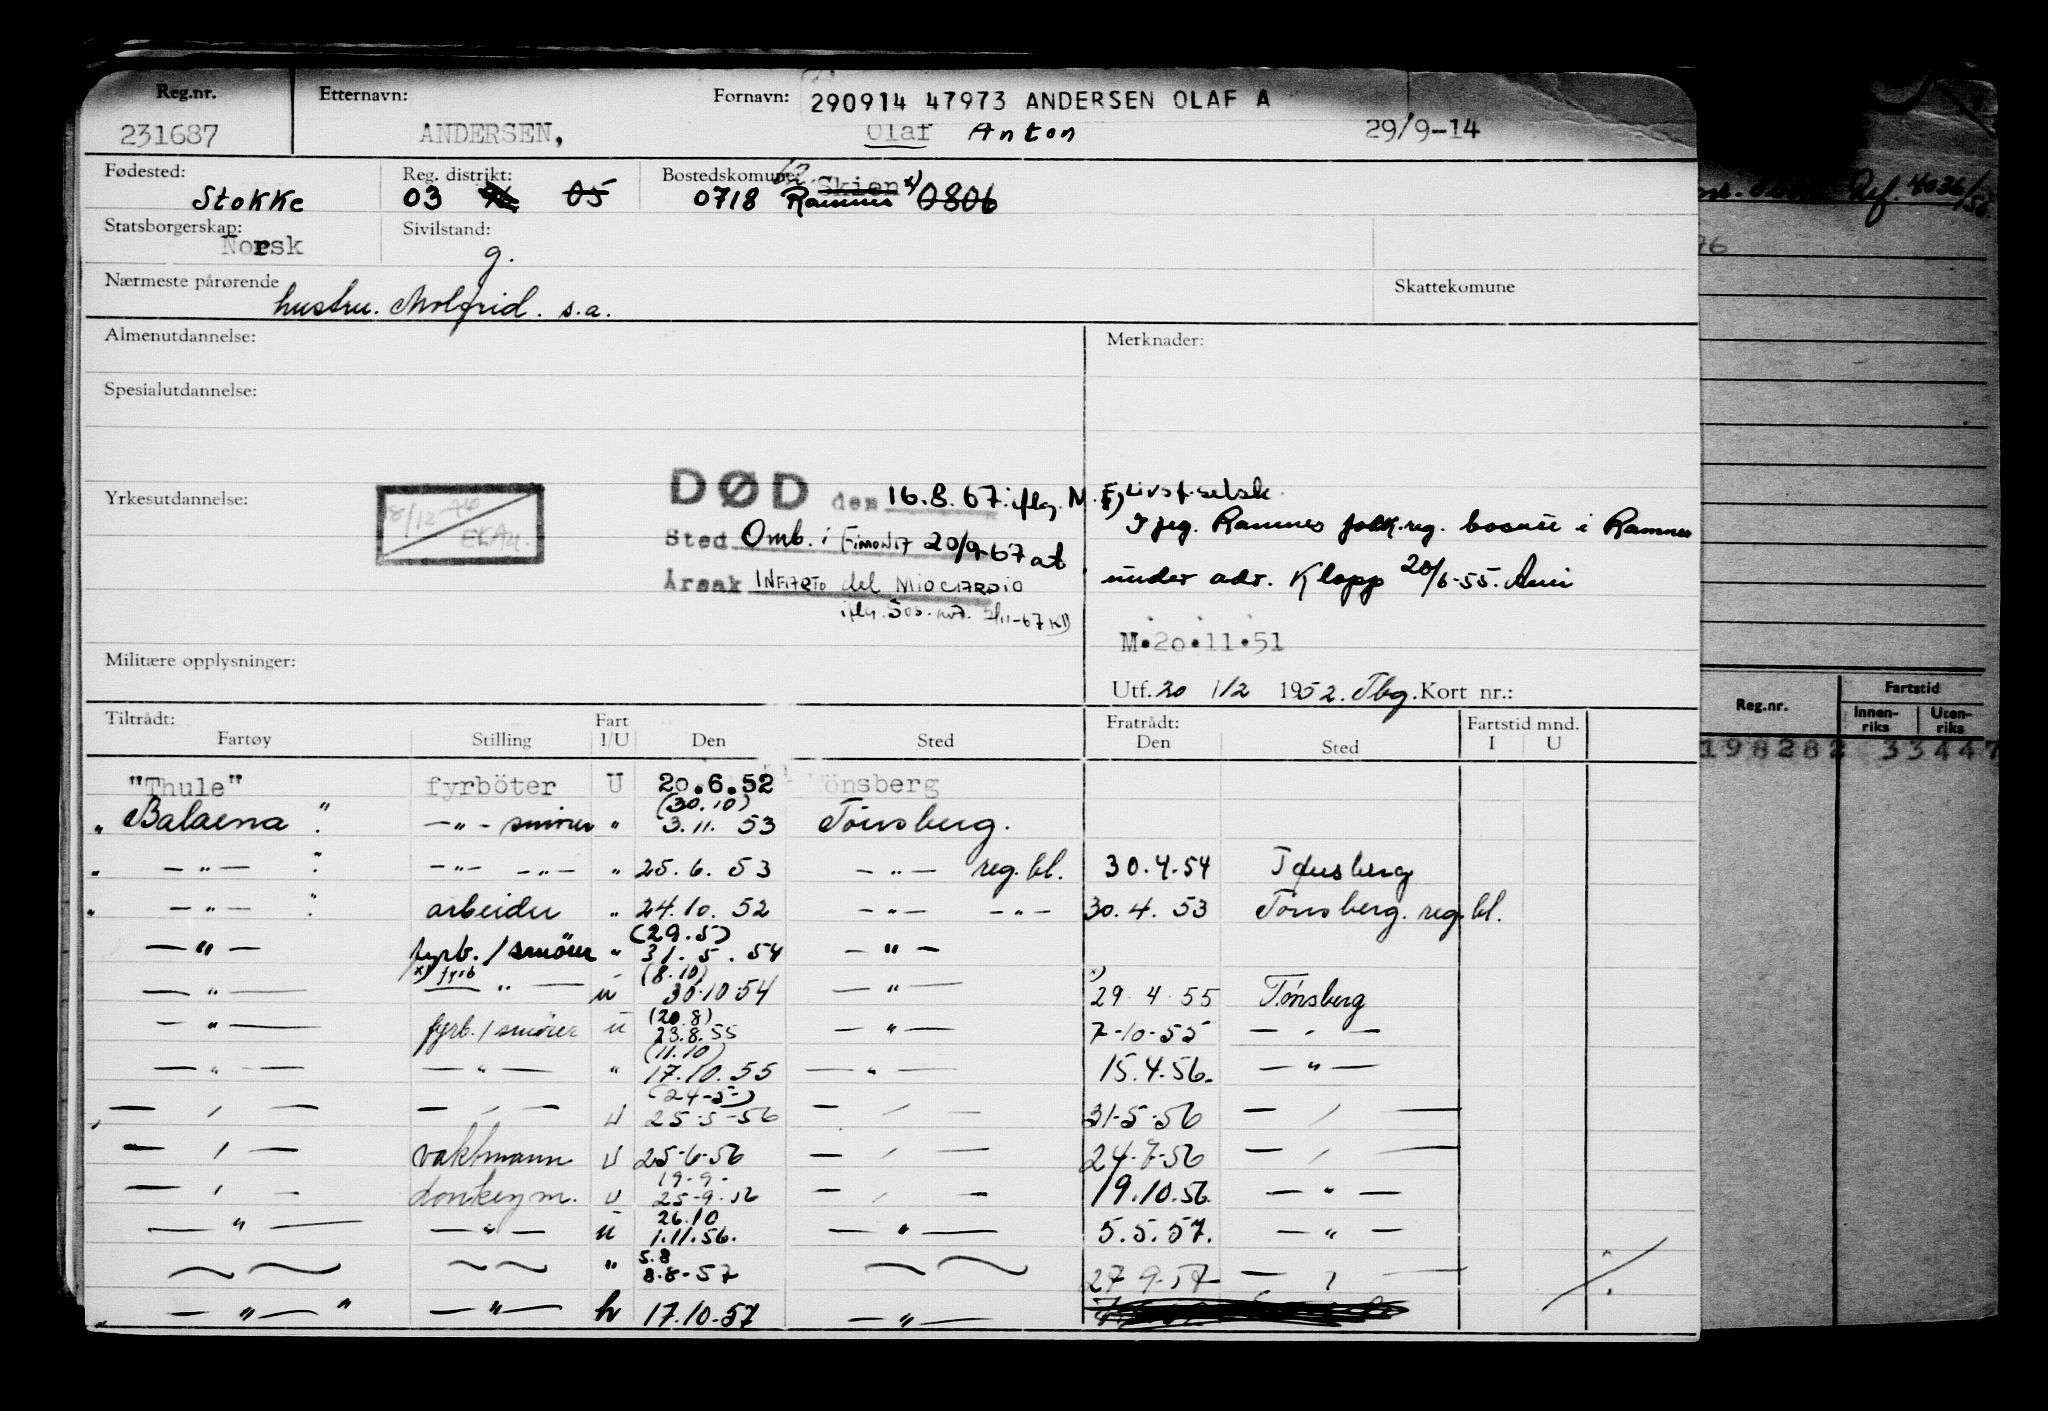 Reg.nr. Etternavn: Fornavn: 290914 47973 ANDERSEN OLAF A
231687 ANDERSEN, Olaf Anton 29/9-14
Fødested: Reg. distrikt: Bostedskomune:
Stokke 03 05 0718 Ramnes Skien x) 0806
Statsborgerskap: Norsk Sivilstand: g.
Nærmeste pårørende hustru. s.a. Skattekomune
Almenutdannelse: Merknader:
Spesialutdannelse:
Yrkesutdannelse:
8/12-76
DØD den 16.8.67. iflg. N. Livsf.selsk.
Sted Omb. i 20/9-67 at
Årsak INFARTO del MIOCARDIO
iflg. Sos. 5/11-67
I flg. Ramnes folk.reg. bosatt i Ramnes
under adr. Klopp 20/6-55.
M.20.11.51
Militære opplysninger:
Utf. 20 1/2 1952. Tbg. Kort nr.:
Tiltrådt: Fart Fratrådt: Fartstid mnd.
Fartøy Stilling I/U Den Sted Den Sted I U
"Thule" fyrböter U 20.6.52 Tönsberg
(30.10)
" Balaena " — " — smører " 3.11. 53 Tönsberg.
" — " — " — " — — " — " 25.6. 53 — " — reg.bl. 30.4.54 Tønsberg
" — " — " arbeider " 24.10. 52 — " — — " — 30.4. 53 Tönsberg. reg.bl.
(29.5)
— " — fyrb. / smörer " 31. 5. 54 — " —
x) fyrb (8.10)
— " — — " — u 30.10 54 — " — 29 4 55 Tönsberg
(20.8)
— " — fyrb. / smörer u 23.8.55 — " — 7-10-55 — " —
(11.10)
— " — — " — " 17.10.55 — " — 15.4.56. — " —
(24-5-)
— " — — " — U 25-5-56 — " — 31-5-56 — " —
— " — vaktmann U 25-6-56 — " — 24-7-56 — " —
19-9-
— " — donkeym. U 25-9-56 — " — 19.10.56. — " —
26.10
— " — — " — u 1.11.56. — " — 5.5.57. — " —
5.8
" 8.8-57 27-9-57 — " —
" — " — " — " — u 17.10.57 — " —
Ref. 4036/56.
76
Reg.nr. Fartstid
Innen-riks Uten-riks
198282 33447